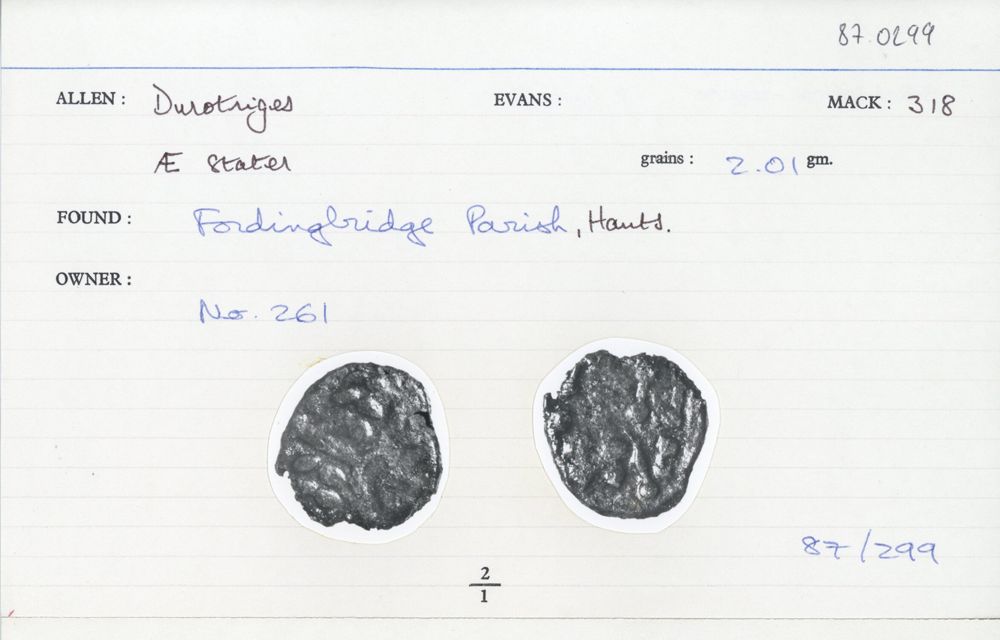 87.0299
ALLEN : Durotriges EVANS : MACK : 318
Æ Stater grains : 2.01 gm.
FOUND : Fordingbridge Parish, Hants.
OWNER :
No. 261
87/299
2
1